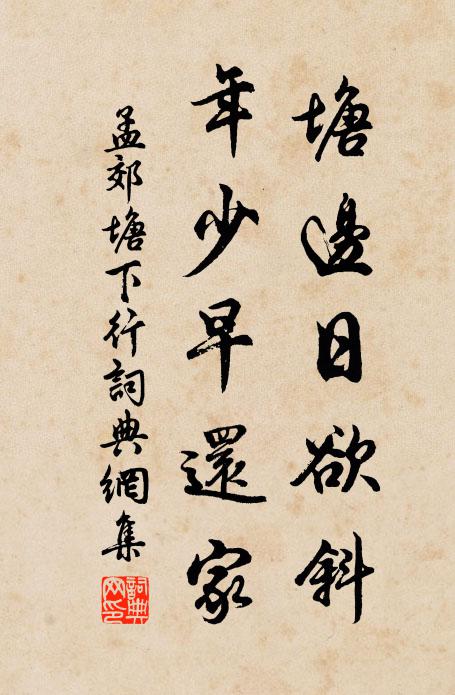 塘邊日欲斜
年少早還家
孟郊塘下行詞典網集
詞典網印